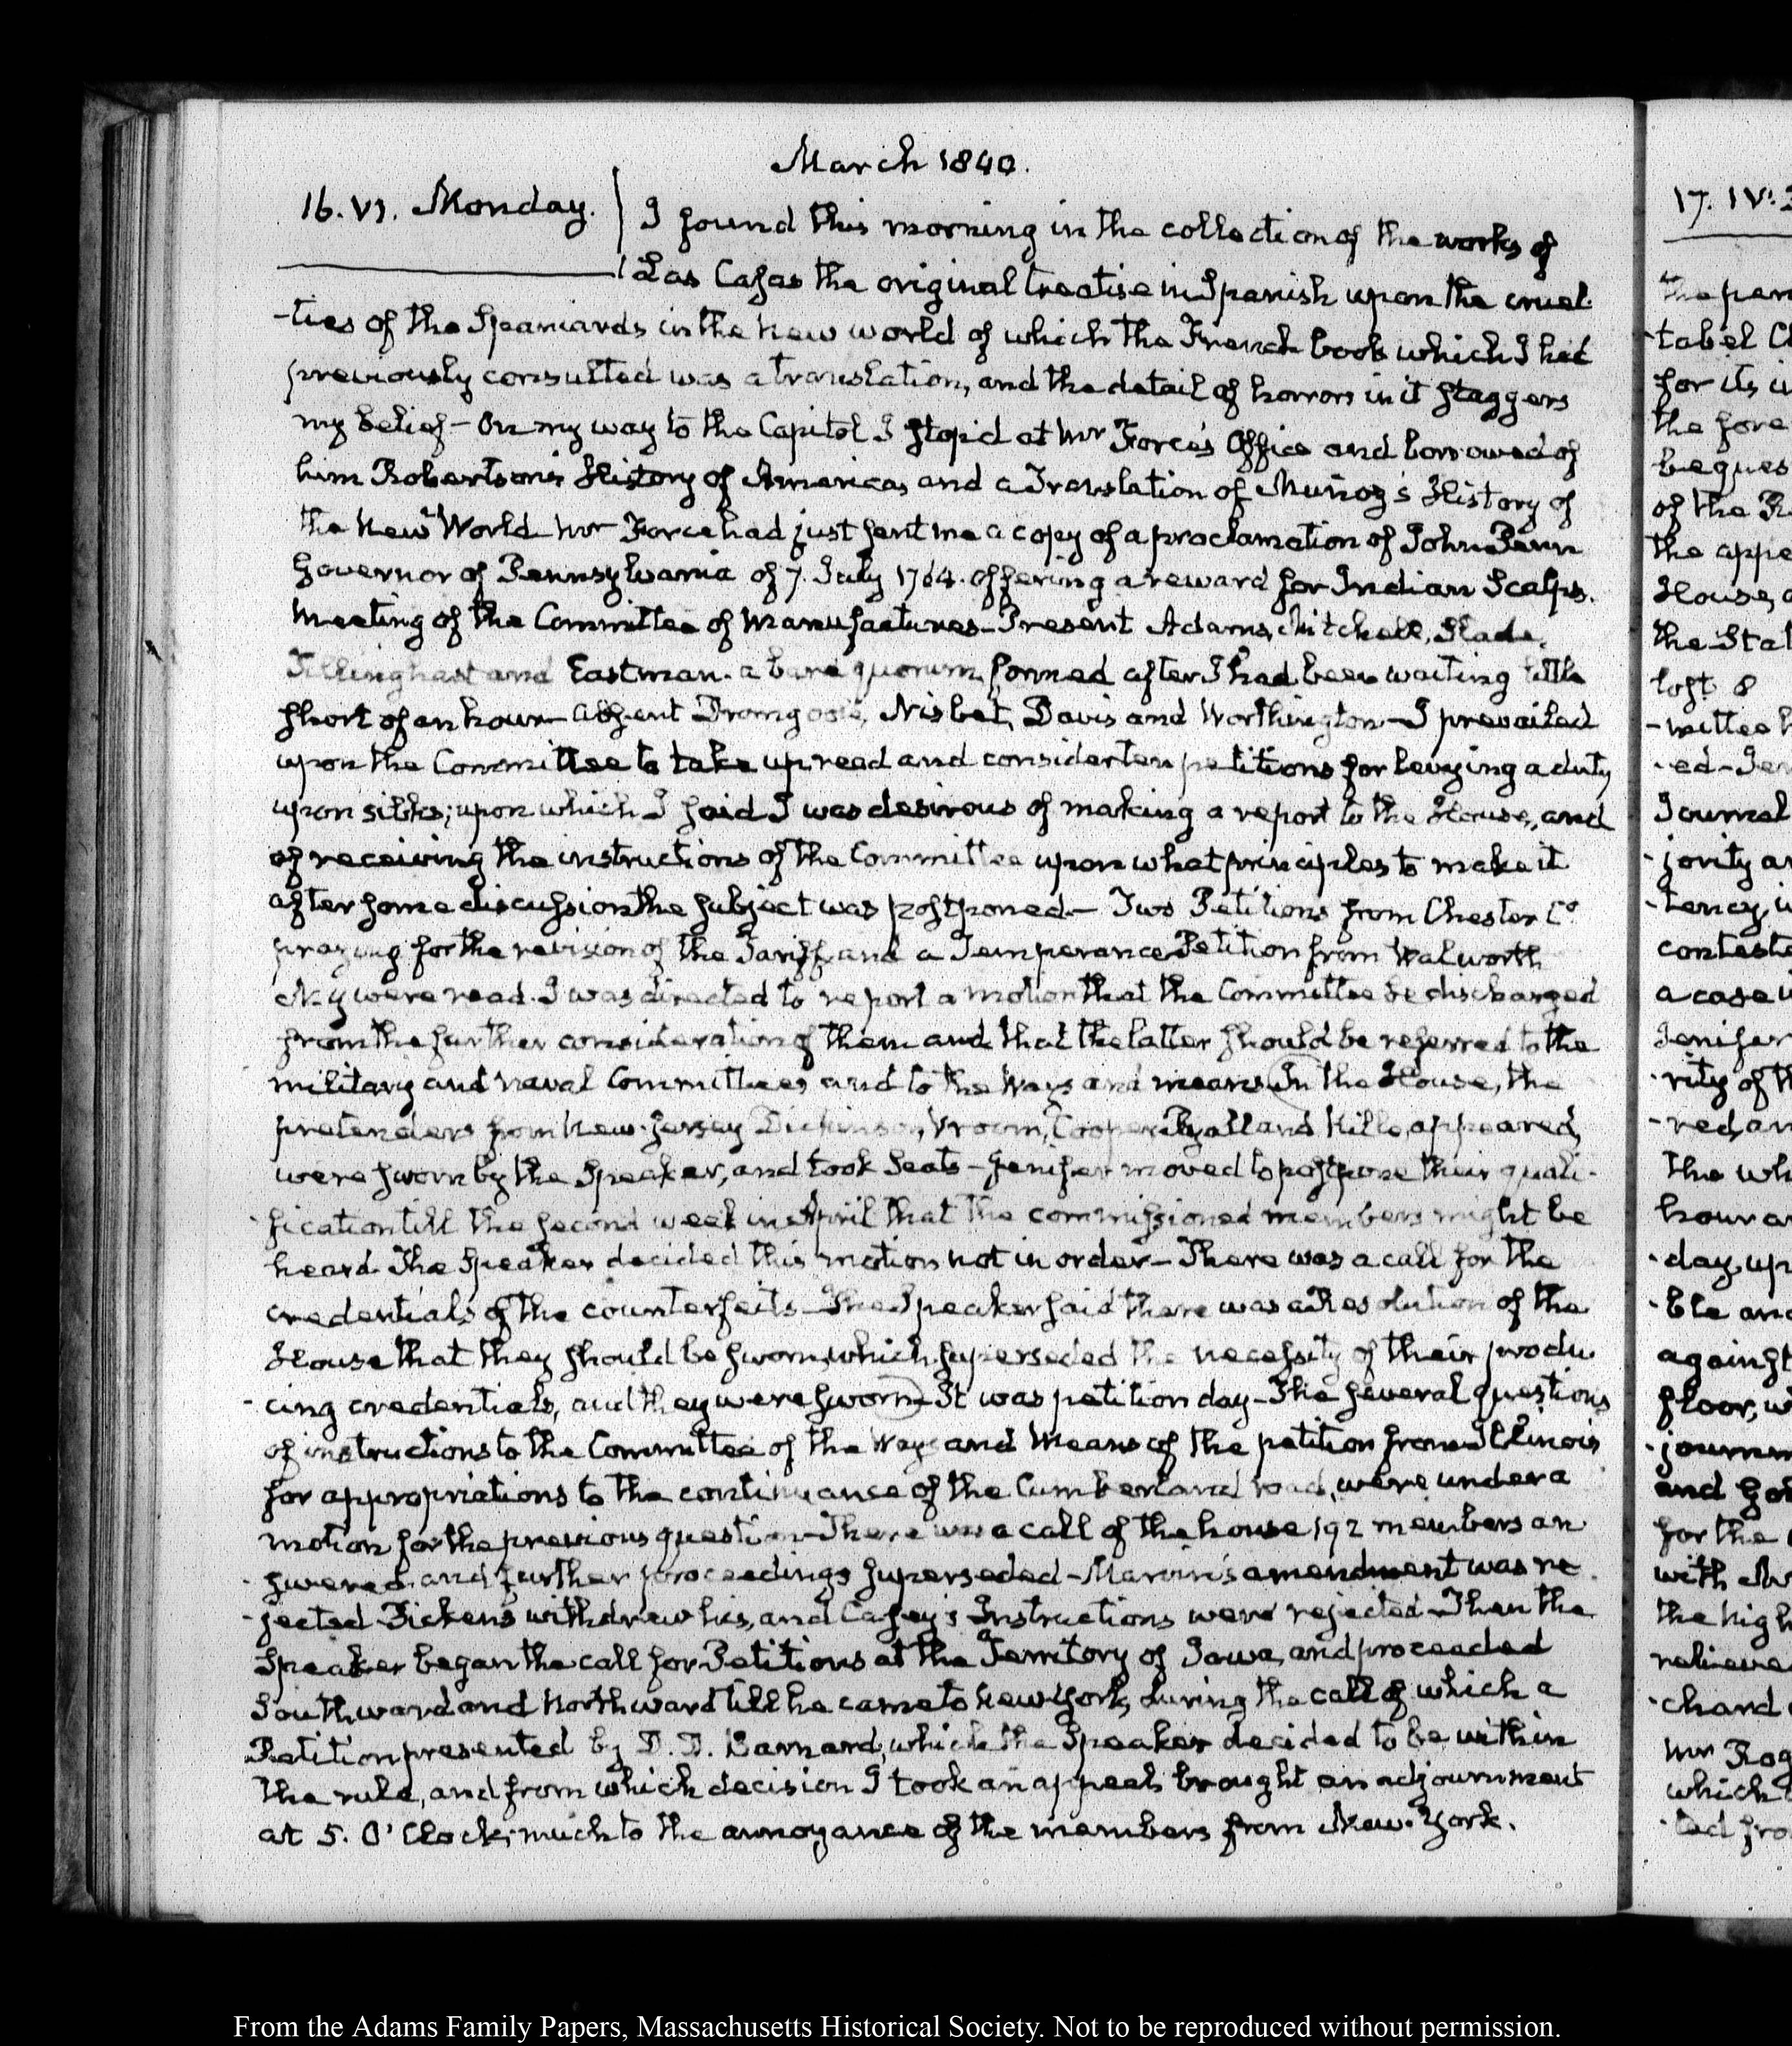 March 1840.
16. VI. Monday. I found this morning in the collection of the works of
Las Casas the original treatise in Spanish upon the cruel-
-ties of the Spaniards in the new world of which the French book which I had
previously consulted was a translation, and the detail of horrors in it staggers
my belief — On my way to the Capitol I stop'd at Mr Force's Office and borrowed of
him Robertson's History of America, and a Translation of Muñoz's History of
the New World. Mr Force had just sent me a copy of a proclamation of John Penn
Governor of Pennsylvania of 7. July 1764. offering a reward for Indian Scalps.
Meeting of the Committee of Manufactures — Present Adams, Mitchell, Slade,
Tillinghast and Eastman. a bare quorum, formed after I had been waiting little
short of an hour — absent Dromgoole, Nisbet, Davis and Worthington — I prevailed
upon the Committee to take up, read and consider ten petitions for levying a duty
upon silks; upon which I said I was desirous of making a report to the House, and
of receiving the instructions of the Committee upon what principles to make it
after some discussion the subject was postponed — Two Petitions from Chester Co.
praying for the revision of the Tariff, and a Temperance Petition from Walworth
N.Y were read. I was directed to report a motion that the Committee be discharged
from the further consideration of them and that the latter should be referred to the
military and naval Committees and to the Ways and means. In the House, the
pretenders from New-Jersey Dickinson, Vroom, Cooper, Ryall and Kille, appeared,
were sworn by the Speaker, and took Seats — Jenifer moved to postpone their quali-
-fication till the second week in April that the commissioned members might be
heard. The Speaker decided this motion not in order — There was a call for the
credentials of the counterfeits — The Speaker said there was a Resolution of the
House that they should be sworn, which superseded the necessity of their produ-
-cing credentials, and they were sworn — It was petition day — The several questions
of instructions to the Committee of the Ways and Means of the petition from Illinois
for appropriations to the continuance of the Cumberland road, were under a
motion for the previous question — There was a call of the house 192 members an
-swered and further proceedings superseded — Marvin's amendment was re
-jected Pickens withdrew his, and Casey's Instructions were rejected — Then the
Speaker began the call for Petitions at the Territory of Iowa, and proceeded
Southward and Northward till he came to New-York, during the call of which a
Petition presented by D. D. Barnard, which the Speaker decided to be within
the rule, and from which decision I took an appeal, brought an adjournment
at 5. O'Clock; much to the annoyance of the members from New-York.
17. IV:
the per
tabel
for its
the fore
beques
of the
the appe
House,
the Stat
lost 8
-mittee
-ed —
Journal
-jority
-tency,
contest
a case
Jenifer
-rity of
-red, an
the wh
hour
-day, up
-ble and
against
floor,
-journm
and
for the
with
the high
relieve
-chard
Mr
which
-ted fro
From the Adams Family Papers, Massachusetts Historical Society. Not to be reproduced without permission.